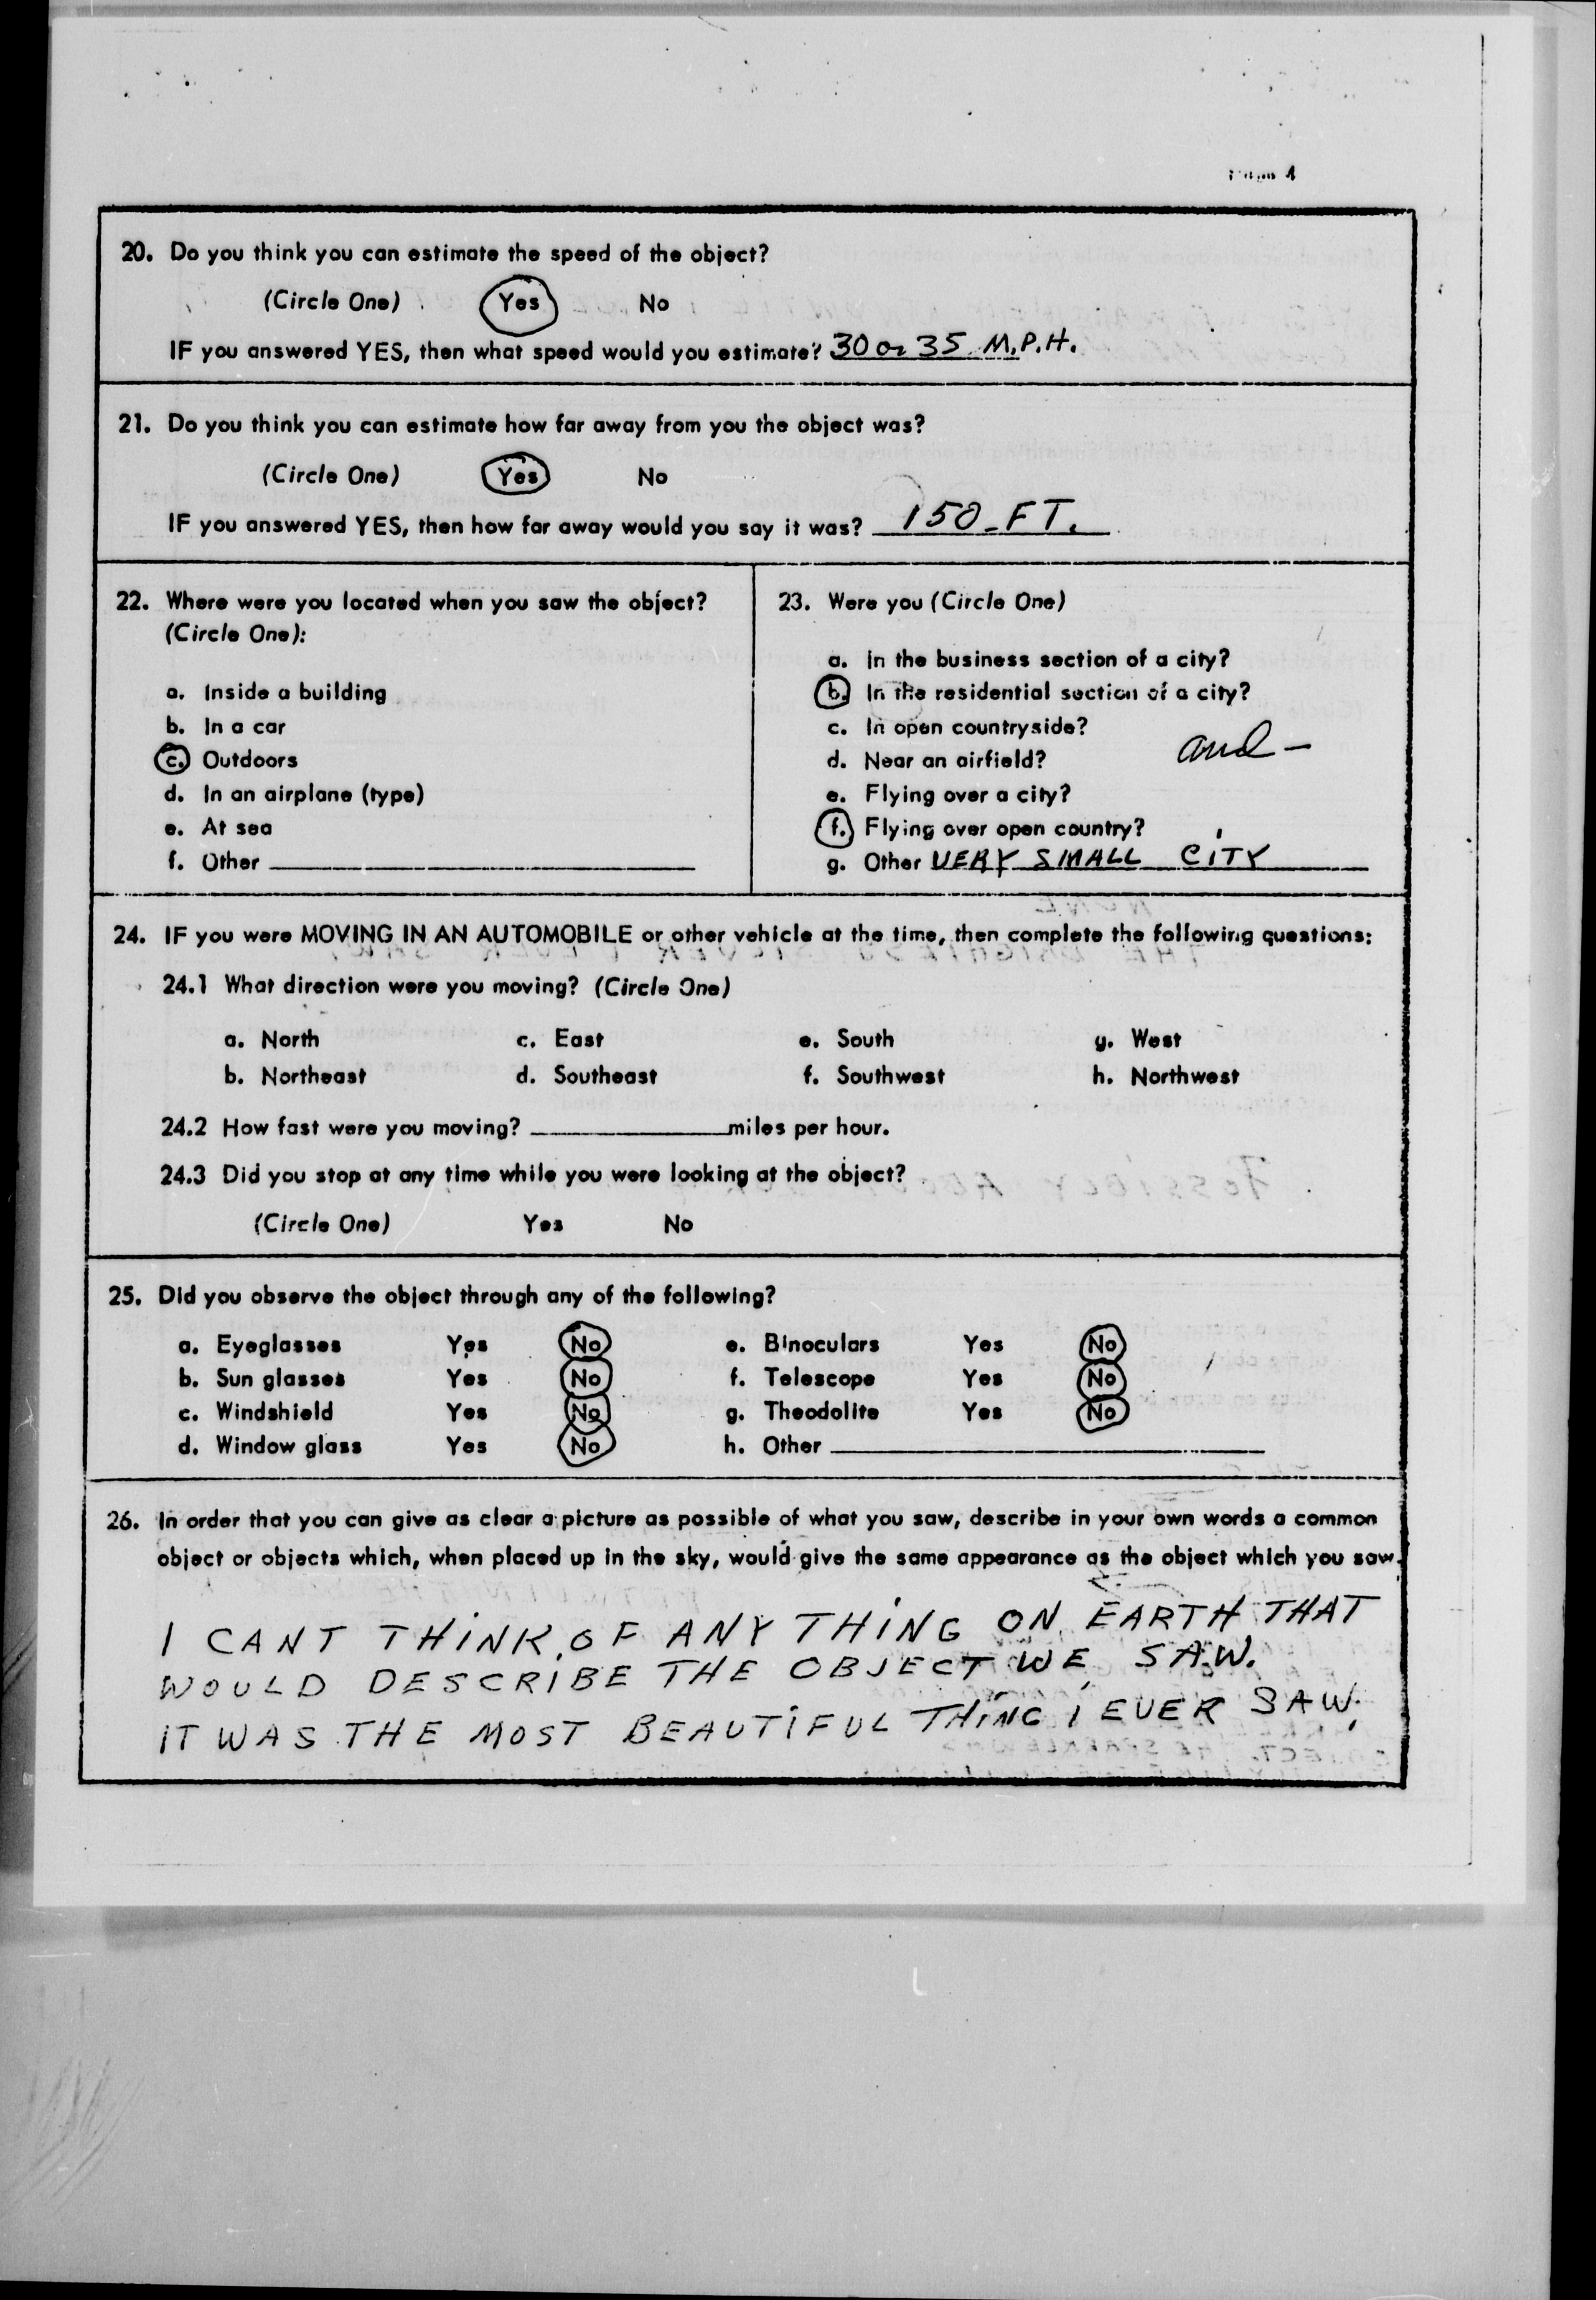 Page 4
20. Do you think you can estimate the speed of the object?
(Circle One) Yes No
IF you answered YES, then what speed would you estimate? 30 or 35 M.P.H.
21. Do you think you can estimate how far away from you the object was?
(Circle One) Yes No
IF you answered YES, then how far away would you say it was? 150 FT.
22. Where were you located when you saw the object?
(Circle One):
a. Inside a building
b. In a car
c. Outdoors
d. In an airplane (type)
e. At sea
f. Other
23. Were you (Circle One)
a. In the business section of a city?
b. In the residential section of a city?
c. In open countryside?
and -
d. Near an airfield?
e. Flying over a city?
f. Flying over open country?
g. Other VERY SMALL CITY
24. IF you were MOVING IN AN AUTOMOBILE or other vehicle at the time, then complete the following questions:
24.1 What direction were you moving? (Circle One)
a. North c. East e. South g. West
b. Northeast d. Southeast f. Southwest h. Northwest
24.2 How fast were you moving? miles per hour.
24.3 Did you stop at any time while you were looking at the object?
(Circle One) Yes No
25. Did you observe the object through any of the following?
a. Eyeglasses Yes No e. Binoculars Yes No
b. Sun glasses Yes No f. Telescope Yes No
c. Windshield Yes No g. Theodolite Yes No
d. Window glass Yes No h. Other
26. In order that you can give as clear a picture as possible of what you saw, describe in your own words a common
object or objects which, when placed up in the sky, would give the same appearance as the object which you saw.
I CANT THINK OF ANY THING ON EARTH THAT
WOULD DESCRIBE THE OBJECT WE SAW.
IT WAS THE MOST BEAUTIFUL THING I EVER SAW.